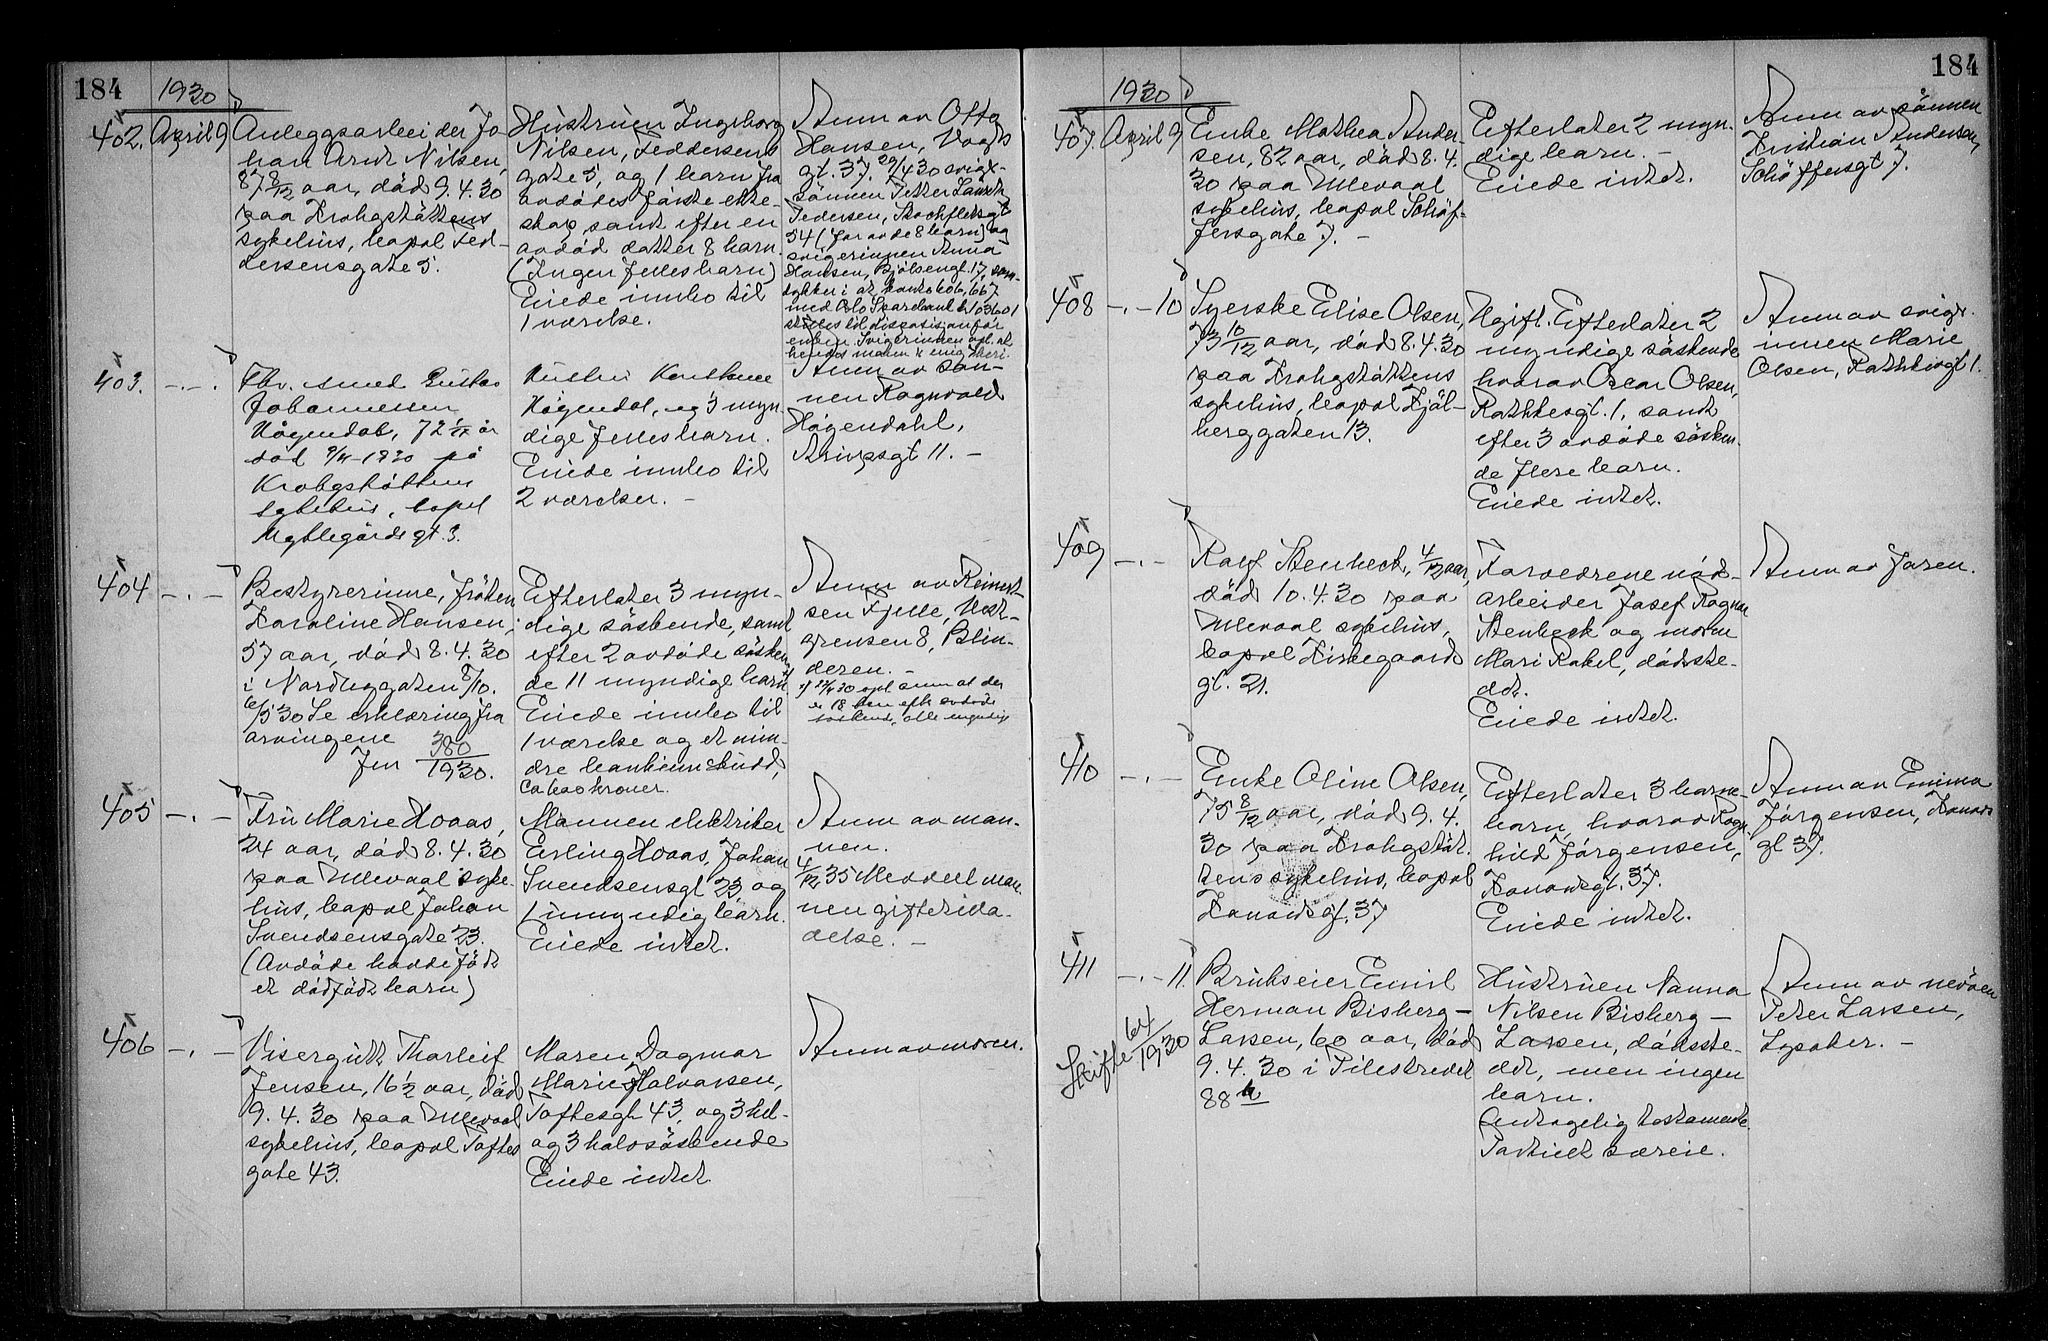 184
1930
402. April 9
Anleggsarbeider Jo-
han Arnt Nilsen,
87 8/12 aar, död 9.4.30
paa Krohgstöttens
sykehus, bopæl Fed-
dersensgate 5.
Hustruen Ingeborg
Nilsen, Feddersens
gate 5, og 1 barn fra
avdødes förste ekte-
skap samt efter en
avdöd datter 8 barn.
(Ingen fellesbarn)
Eiede innbo til
1 værelse.
Anm av Otto
Hansen, Vogts
gt. 37. 29/4 30 svige-
sönnen Petter
Pedersen,
54 (far av de 8 barn) og
svigerinnen Anna
Hansen, Bjölsengt. 17, sam-
tykker i at konto 606,667
med Oslo Sparebank
stilles til disposisjon for
enken. Svigerinnen opl. at
hendes mann er enig
403. -.-.
Fhv. smed Gustav
Johannessen
Högendal, 72 år
död 9/4-1930 på
Krohgstöttens
sykehus, bopel
gt. 3.
Hustru
Högendal, og 3 myn-
dige fellesbarn.
Eiede innbo til
2 værelser. -
Anm av søn-
nen Ragnvald
Høgendahl,
Arupsgt 11. -
404 -.-
Bestyrerinne, fröken
Karoline Hansen,
57 aar, död 8.4.30
i Nordbygaten 8/10.
6/5 30 Se erklæring fra
arvingene
Jnr 380/1930.
Efterlater 3 myn-
dige söskende, samt
efter 2 avdöde sösken-
de 11 myndige barn.
Eiede innbo til
1 værelse og et min-
dre bankinnskudd,
ca 600 kroner.
Anm av Reinert-
sen Fjelle, Vest-
grensen 8, Blin-
deren. -
opl anm at der
er 18 barn efter avdöde
söskend, alle myndig
405 -.-
Fru Marie Hovas,
24 aar, död 8.4.30
paa Ullevaal syke-
hus, bopæl Johan
Svendsensgate 23.
(Avdöde havde födt
et dödfödt barn)
Mannen elektriker
Erling Hovas, Johan
Svendsensgt 23, og
1 umyndig barn.
Eiede intet.
Anm av man-
nen.
4/12 35 Meddelt man-
nen giftetilla-
delse. -
406 -.-
Visergutt Thorleif
Jensen, 16 1/2 aar, död
9.4.30 paa Ullevaal
sykehus, bopæl Toftes
gate 43.
Moren Dagmar
Marie Halvorsen,
Toftesgt 43, og 3 hel-
og 3 halvsöskende
Eiede intet.
Anm av moren.
184
1930
407. April 9
Enke Mathea Ander-
sen, 82 aar, död 8.4.
30 paa Ullevaal
sykehus, bopæl Schöf-
fersgate 7. -
Efterlater 2 myn-
dige barn. -
Eiede intet.
Anm av sönnen
Kristian Andersen,
Schöffersgt 7.
408 -.- 10
Syerske Elise Olsen,
73 10/12 aar, död 8.4.30
paa Krohgstöttens
sykehus, bopæl Kjöl-
berggaten 13.
Ugift. Efterlater 2
myndige söskende
hvorav Oscar Olsen,
Rathkesgt. 1, samt
efter 3 avdöde sösken-
de flere barn.
Eiede intet.
Anm av svige-
rinnen Marie
Olsen, Rathkesgt 1.
409 -.-
Rolf Stenbeck, 4/12 aar,
död 10.4.30 paa
Ullevaal sykehus,
bopæl Kirkegaards
gt. 21.
Forældrene nöds-
arbeider Josef Ragnar
Stenbeck og moren
Mari Rakel, dödste-
det.
Eiede intet.
Anm av faren.
410 -.-
Enke Oline Olsen,
75 8/12 aar, död 9.4.
30 paa Krohgstöt-
tens sykehus, bopæl
Kanonsgt. 37
Efterlater 3 barne-
barn, hvorav Ragn-
hild Jörgensen,
Kanonsgt. 37.
Eiede intet.
Anm av Emma
Jörgensen, Kanons
gt 37.
411 -.- 11.
Skifte 64/1930
Brukseier Emil
Herman Bisberg-
Larsen, 60 aar, död
9.4.30 i Pilestredet
88 b
Hustruen Nanna
Nilsen Bisberg-
Larsen, dödsste-
det, men ingen
barn.
Antagelig testamente.
Partiell særeie.
Anm av nevöen
Peter Larsen,
Lysaker. -